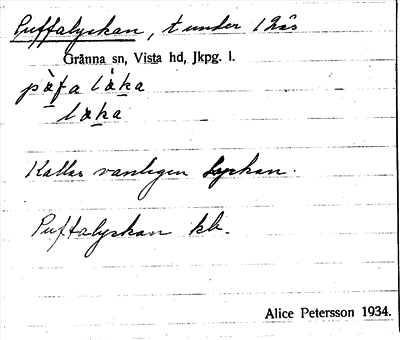 Puffalyckan, t under 1 Häs
Gränna sn, Vista hd, Jkpg. l.
Kallas vanligen Lyckan.
Puffalyckan kb.
Alice Petersson 1934.